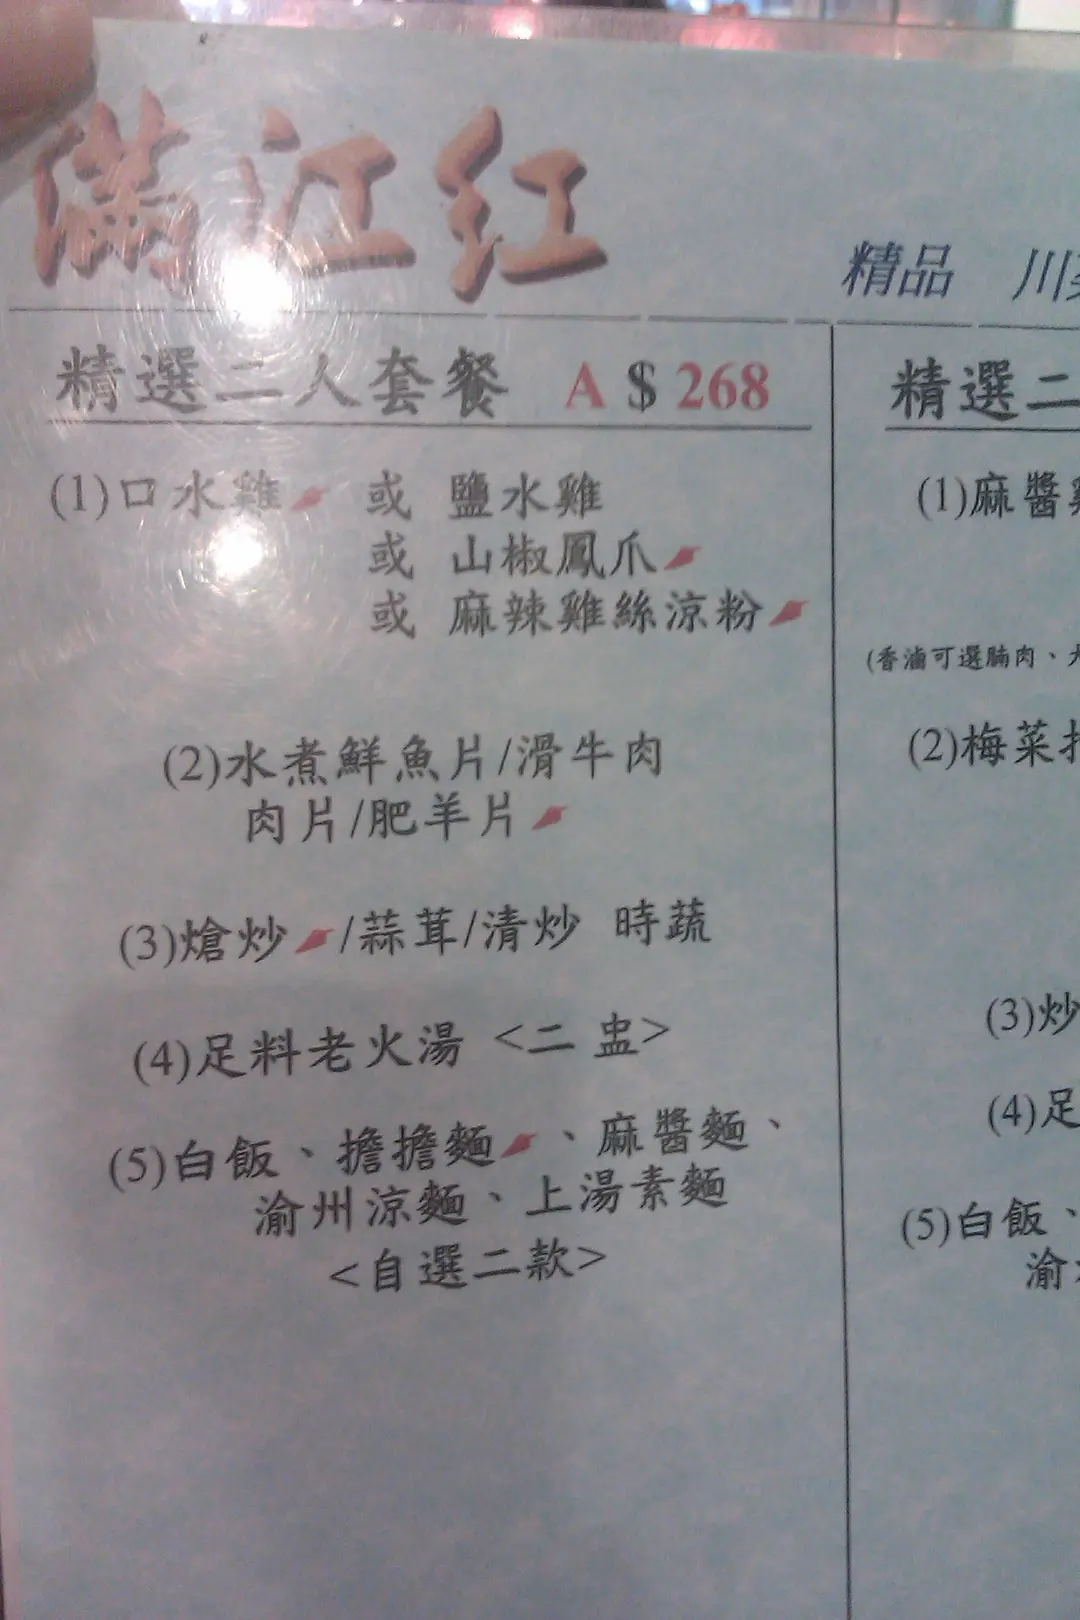 滿江紅
精品 川
精選二人套餐 A $ 268
(1)口水雞 或 鹽水雞
或 山椒鳳爪
或 麻辣雞絲涼粉
(2)水煮鮮魚片/滑牛肉
肉片/肥羊片
(3)熗炒/蒜茸/清炒 時蔬
(4)足料老火湯 <二 盅>
(5)白飯、擔擔麵、麻醬麵、
渝州涼麵、上湯素麵
<自選二款>
精選二
(1)麻醬
(香滷可選腩肉、
(2)梅菜
(3)炒
(4)足
(5)白飯、
渝